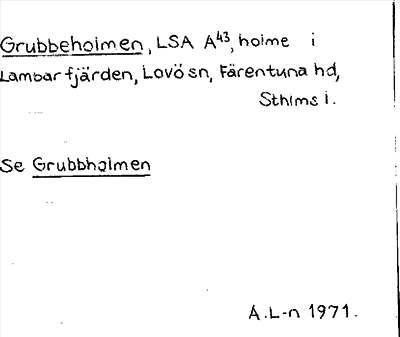 Grubbeholmen, LSA A43, holme i
Lambarfjärden, Lovö sn, Färentuna hd,
Sthlms l.
Se Grubbholmen
A.L-n 1971.